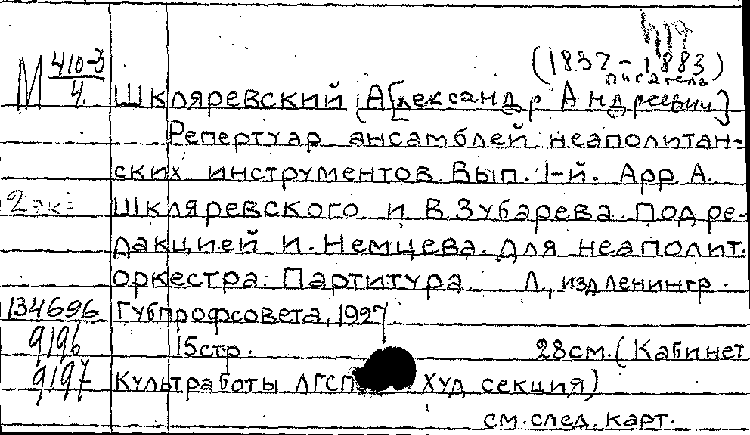 (1837-1883)
писатель
М 410-3/4 Шкляревский, А[лександр Андреевич]
Репертуар ансамблей неаполитан-
ских инструментов. Вып. 1-й. Арр. А.
2 экз Шкляревского и В. Зубарева. Под ре-
дакцией И. Немцева. Для неаполит.
оркестра. Партитура. Л., изд. Ленингр.
134696 Губпрофсовета, 1927.
9196 15 стр. 28 см. (Кабинет
9197 Культработы ЛГСП Худ. секция)
см. след. карт.